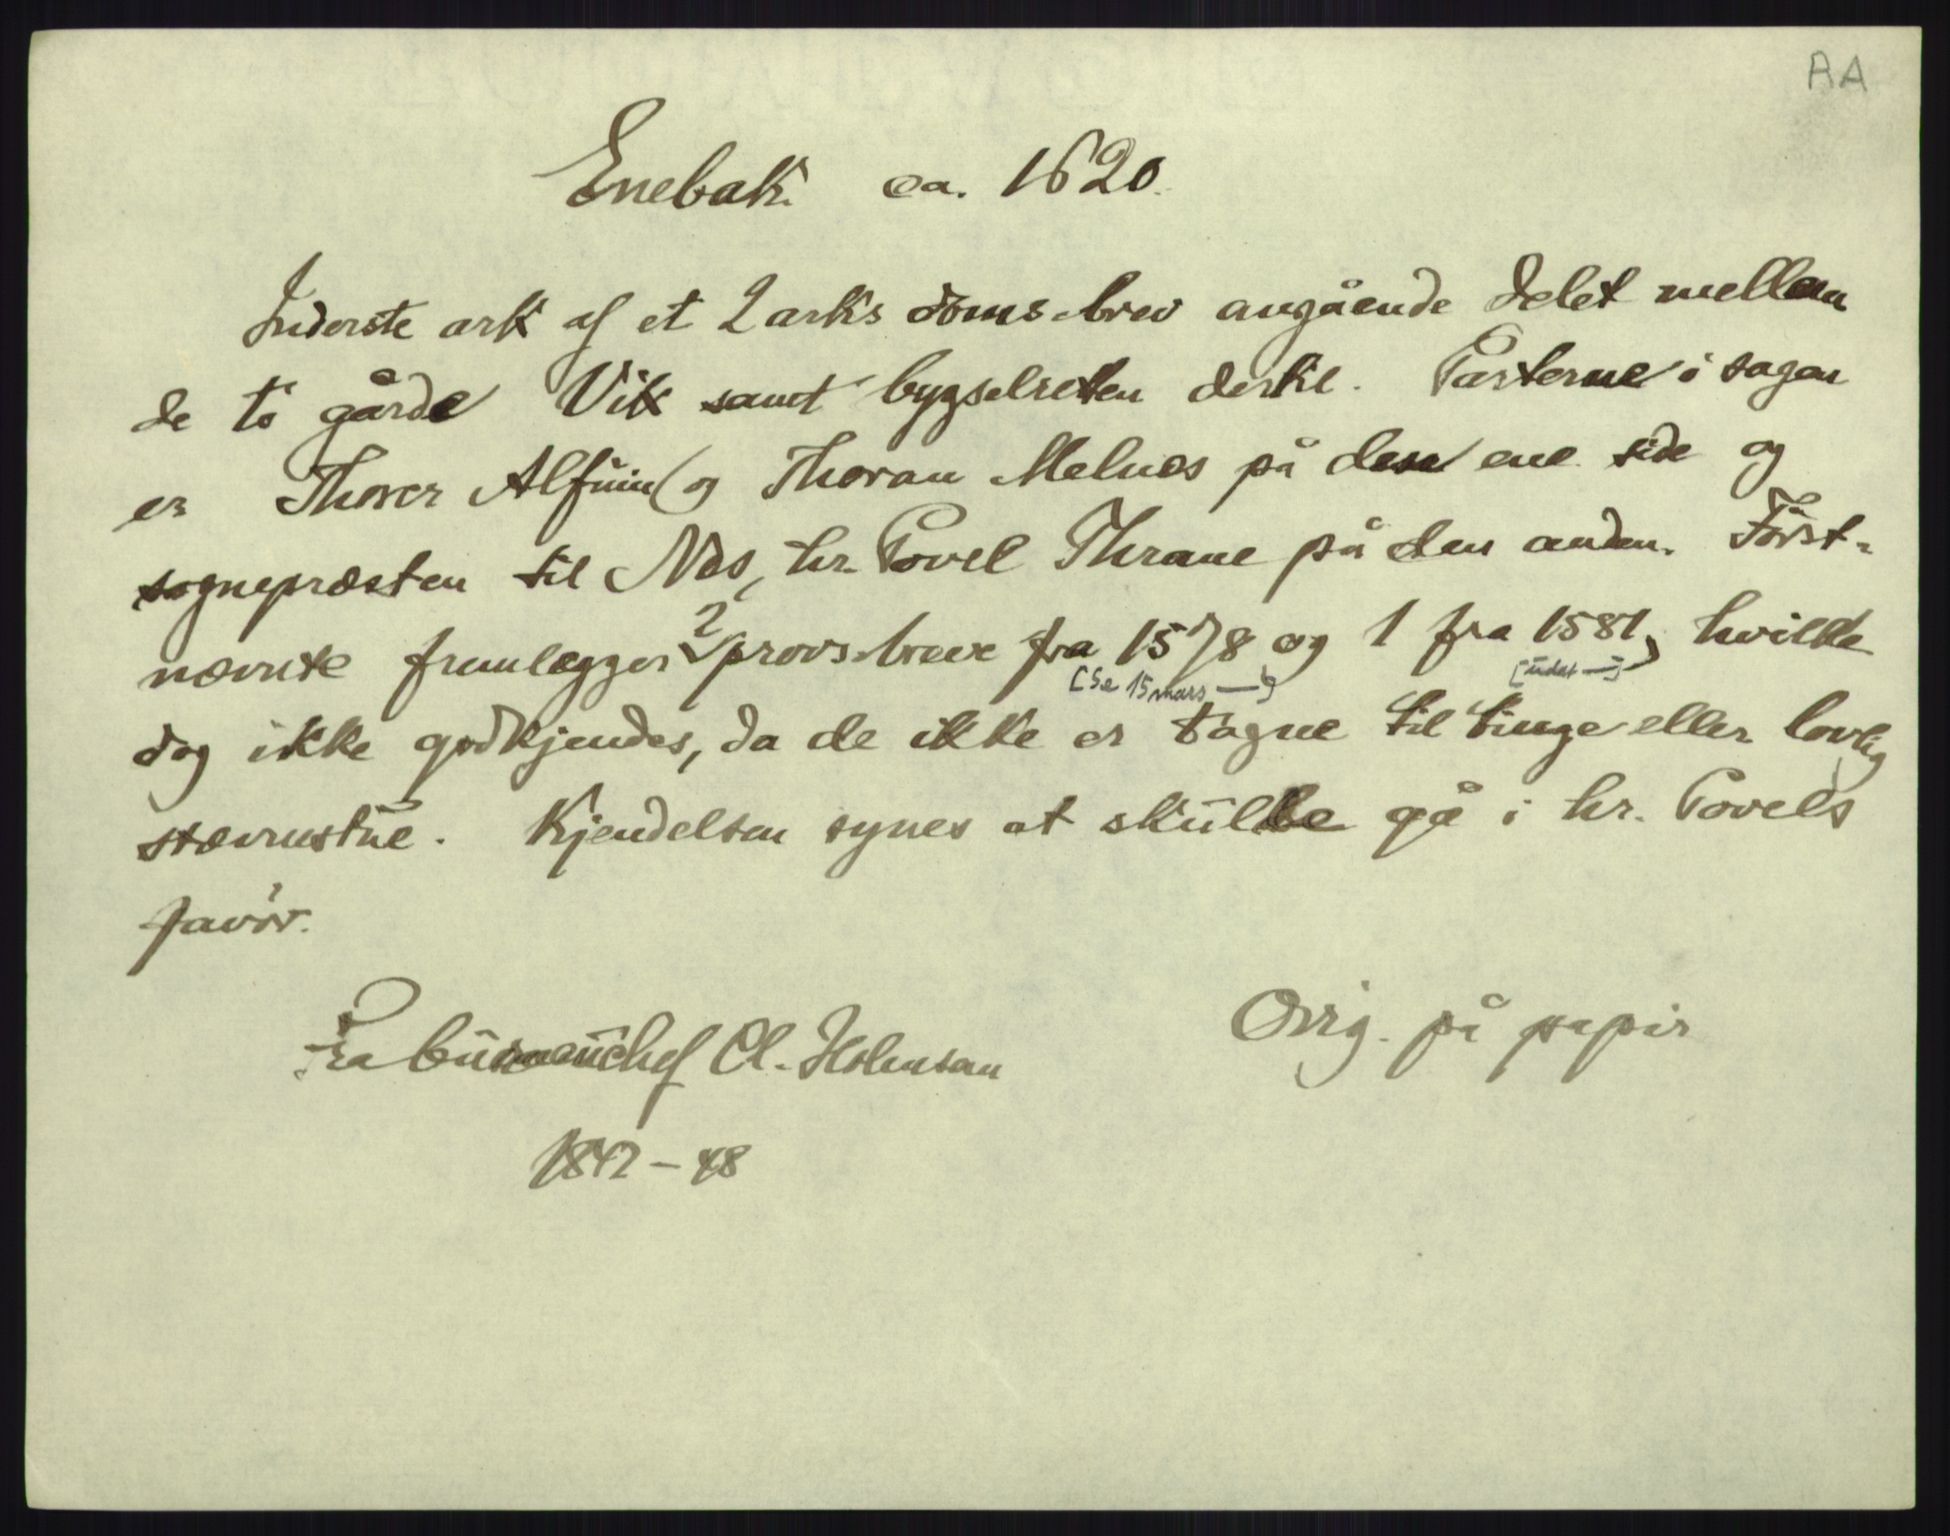 RA
Enebak. ca. 1620.
Inderste ark af et 2 arks domsbrev angående delet mellem
de to gårde Vik samt bygselretten dertil. Parterne i sagen
er Thorer Alfuin og Thoran Melnes på den ene side og
sognepræsten til Næs, hr. Povel Thrane på den anden. Først-
nævnte fremlægger 2 provsbreve fra 1578 og 1 fra 1581, hvilke
[Se 15 mars —] [udat —]
dog ikke godkjendes, da de ikke er tagne til tinge eller lovlig
stævnestue. Kjendelsen synes at skulle gå i hr. Povels
favør.
Fra bureauchef Cl. Holmsen
Orig. på papir
1842-48